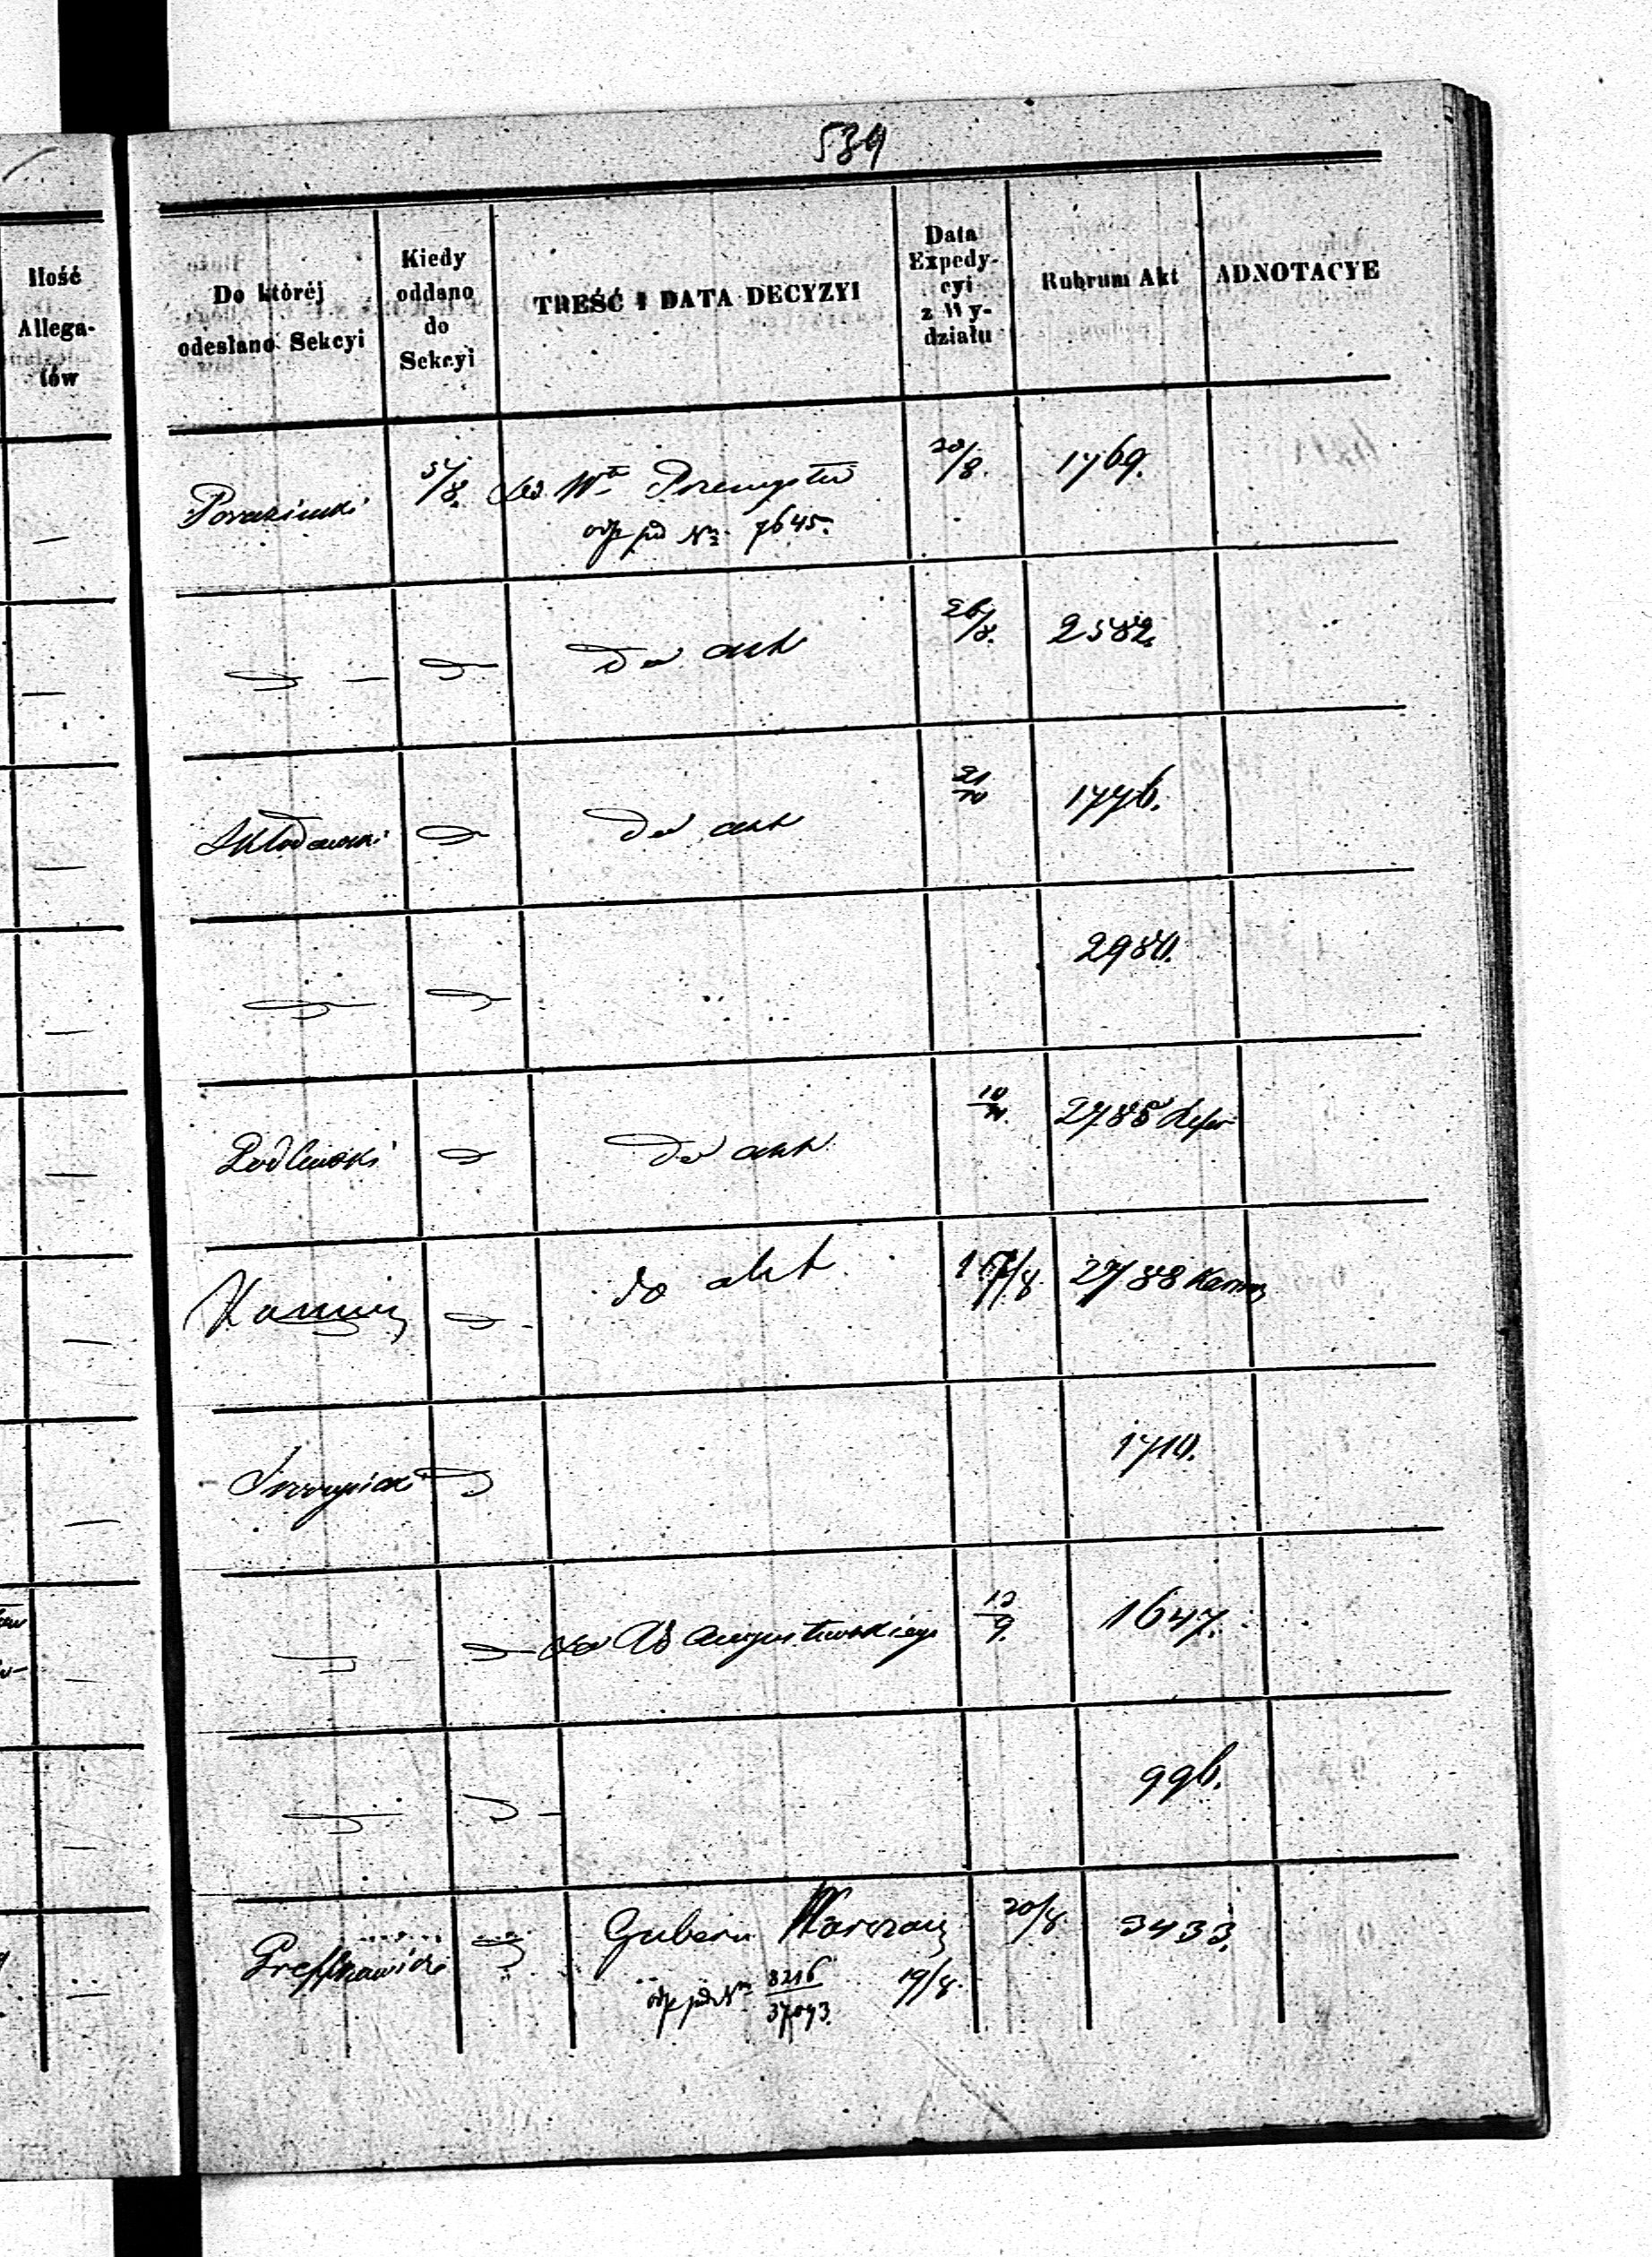 539
Ilość
Allega-
tów
Do któréj
odesłano Sekcyi
Kiedy
oddano
do
Sekcyi
TREŚĆ I DATA DECYZYI
Data
Expedy-
cyi
z Wy-
działu
Rubrum Akt
ADNOTACYE
5/8. Przemysłu 20/8. 1769.
odp pod No 7645.
Do akt 26/8. 2582.
Skłodowski Do akt 21/10 1776.
2980.
Podlewski Do akt 10/11. 2785
do akt 17/8. 2788
1710.
Augustowskiego 12/9. 1647.
996.
Gubern Warszaw 20/8. 3433.
odp pod No 8216/37093. 19/8.